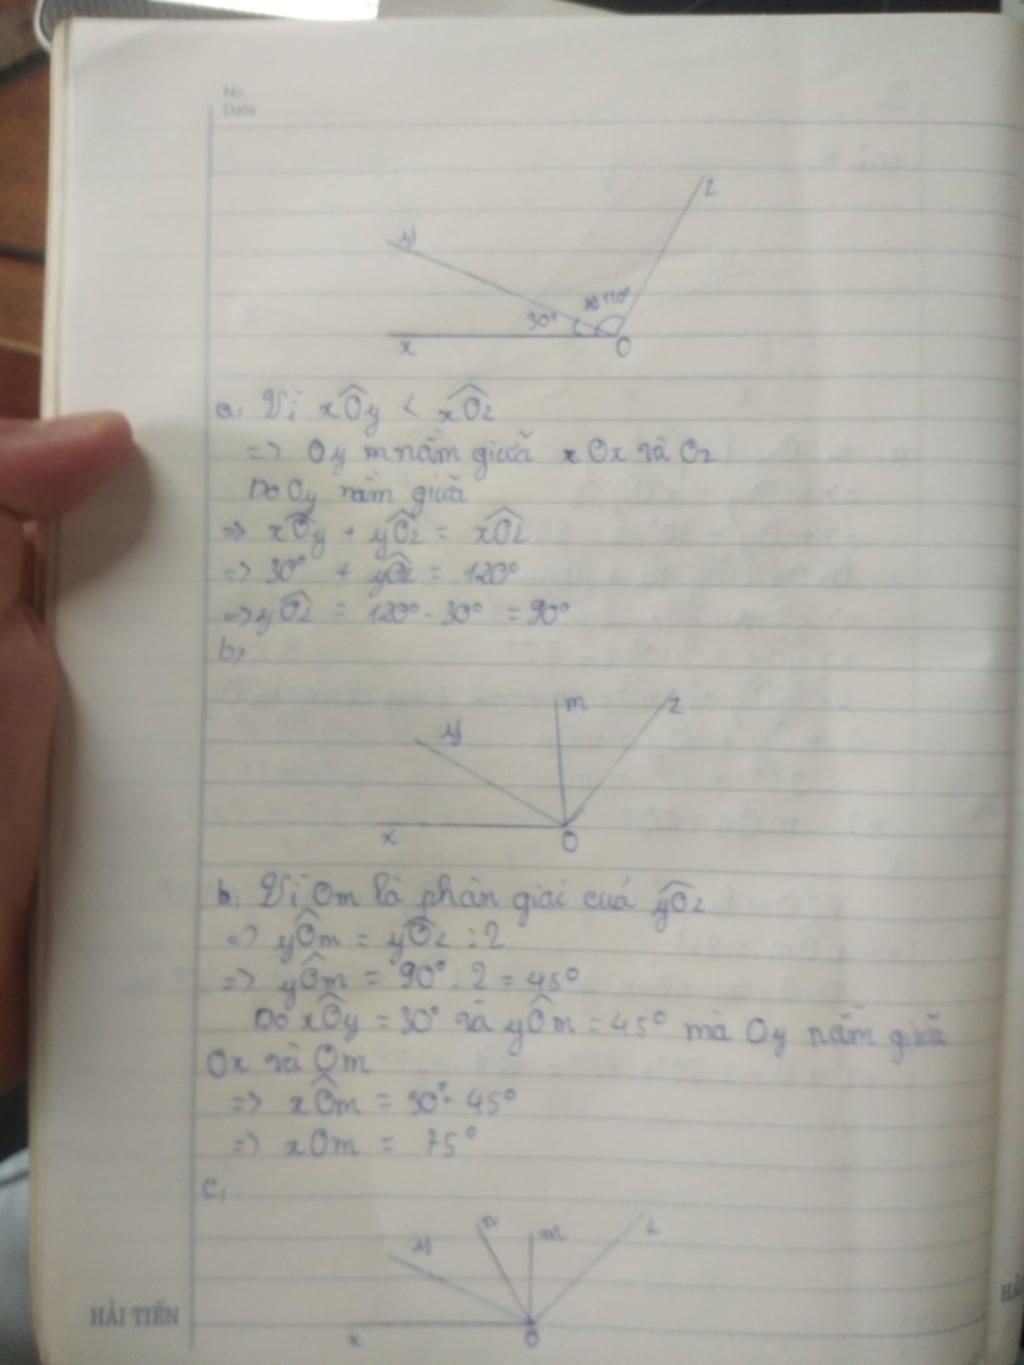 No
Date
z
y
30° 120°
x O
a, Vì xÔy < xÔz
=> Oy nằm giữa Ox và Oz
Do Oy nằm giữa
=> xÔy + yÔz = xÔz
=> 30° + yÔz = 120°
=> yÔz = 120° - 30° = 90°
b,
m z
y
x O
b, Vì Om là phân giác của yÔz
=> yÔm = yÔz : 2
=> yÔm = 90° : 2 = 45°
Do xÔy = 30° và yÔm = 45° mà Oy nằm giữa
Ox và Om
=> xÔm = 30° - 45°
=> xOm = 75°
c,
y n m z
x O
HẢI TIẾN